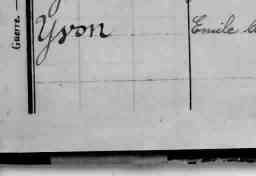 Guerre.
Yvon
Emile